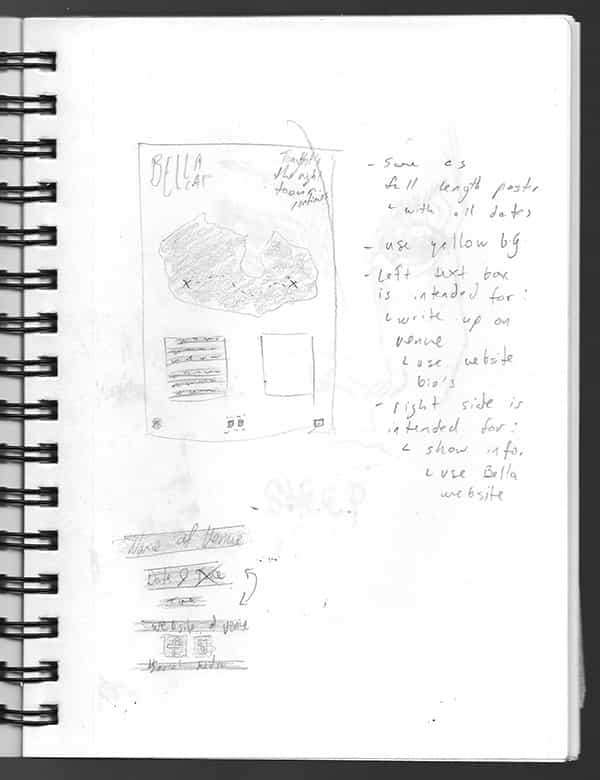 BELLA
CAT
the night
- Same as
full length poster
↳ with all dates
- use yellow BG
- Left text box
is intended for:
↳ write up on
venue
↳ use website
bio's
- right side is
intended for:
↳ show info.
↳ use Bella
website
Name of Venue
Date &
Time
website of venue
Social media